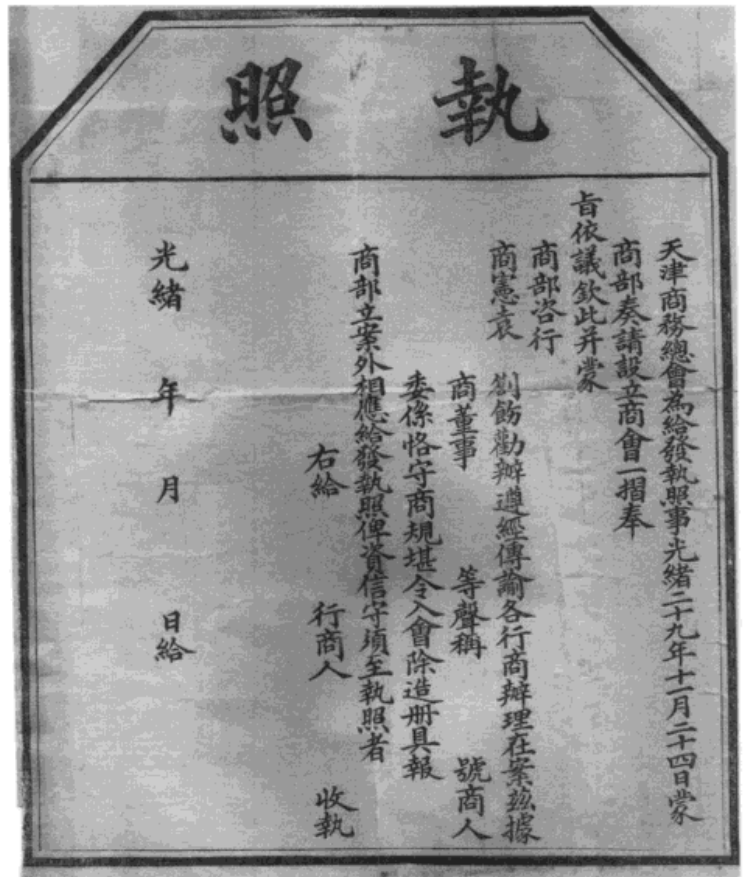 執照
天津商務總會為給發執照事光緒二十九年十一月二十四日蒙
商部奏請設立商會一摺奉
旨依議欽此并蒙
商部咨行
商憲袁 劄飭勸辦遵經傳諭各行商辦理在案茲據
商董事 等聲稱 號商人
委係恪守商規堪令入會除造册具報
商部立案外相應給發執照俾資信守須至執照者
右給 行商人 收執
光緒 年 月 日給